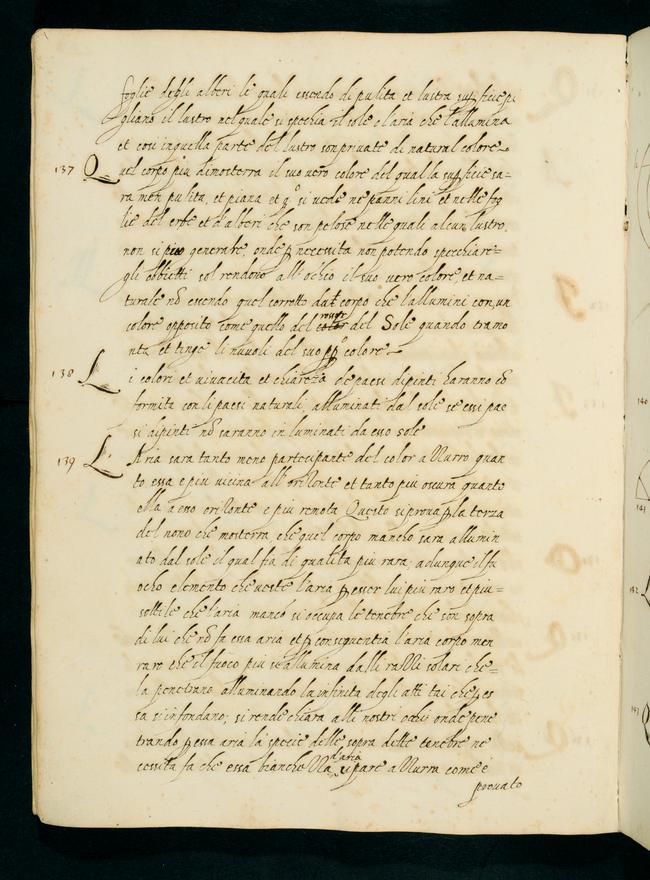 foglie degli alberi le quali essendo di pulita et lustra superficie pi
gliano il lustro nel quale si spechia il sole e l'aria che l'allumina
et cosi in quella parte del lustro son private di natural colore
137 Quel corpo piu dimosterra il suo vero colore del qual la superficie sa=
ra men pulita, et piana et qo si vede ne panni lini et nelle fog
lie dell erbe et d'alberi che son pelose nelle quali alcun lustro
non si puo generare, onde p necessita non potendo specchiare=
gli obbietti sol rendono all'ochio il suo vero colore, et na=
turale nō essendo quel corretto da corpo che l'allumini con un
colore opposito come quello del rossore del Sole quando tramo
nta et tinge li nuvoli del suo pp° colore
138 Li colori et vivacita et chiarezza de paesi dipinti haranno cō
formita con li paesi naturali, alluminati dal sole se essi pae
si dipinti nō saranno in luminati da esso sole
139 L'Aria sara tanto meno partecipante del color aZZurro quan
to essa e piu vicina all'oriZonte et tanto piu oscura quanto
ella a esso oriZonte e piu remota Questo si prova p la terza
del nono che mosterra che quel corpo mancho sara allumin
ato dal sole il qual fia di qualita piu rara; adunque il fu
ocho elemento che veste l'aria p esser lui piu raro et piu=
sottile che l'aria manco si occupa le tenebre che son sopra
di lui che nō fa essa aria et p consequentia l'aria corpo men
raro che il fuoco piu s'allumina dalli raZZi solari che=
la penetrano alluminando la infinita degli atti tai che p es
sa si infondano; si rende chiara alli nostri ochi onde pene
trando p essa aria la spetie delle sopra dette tenebre ne
cessita fa che essa biancheZZa d'aria ci pare aZZurra come e
provato